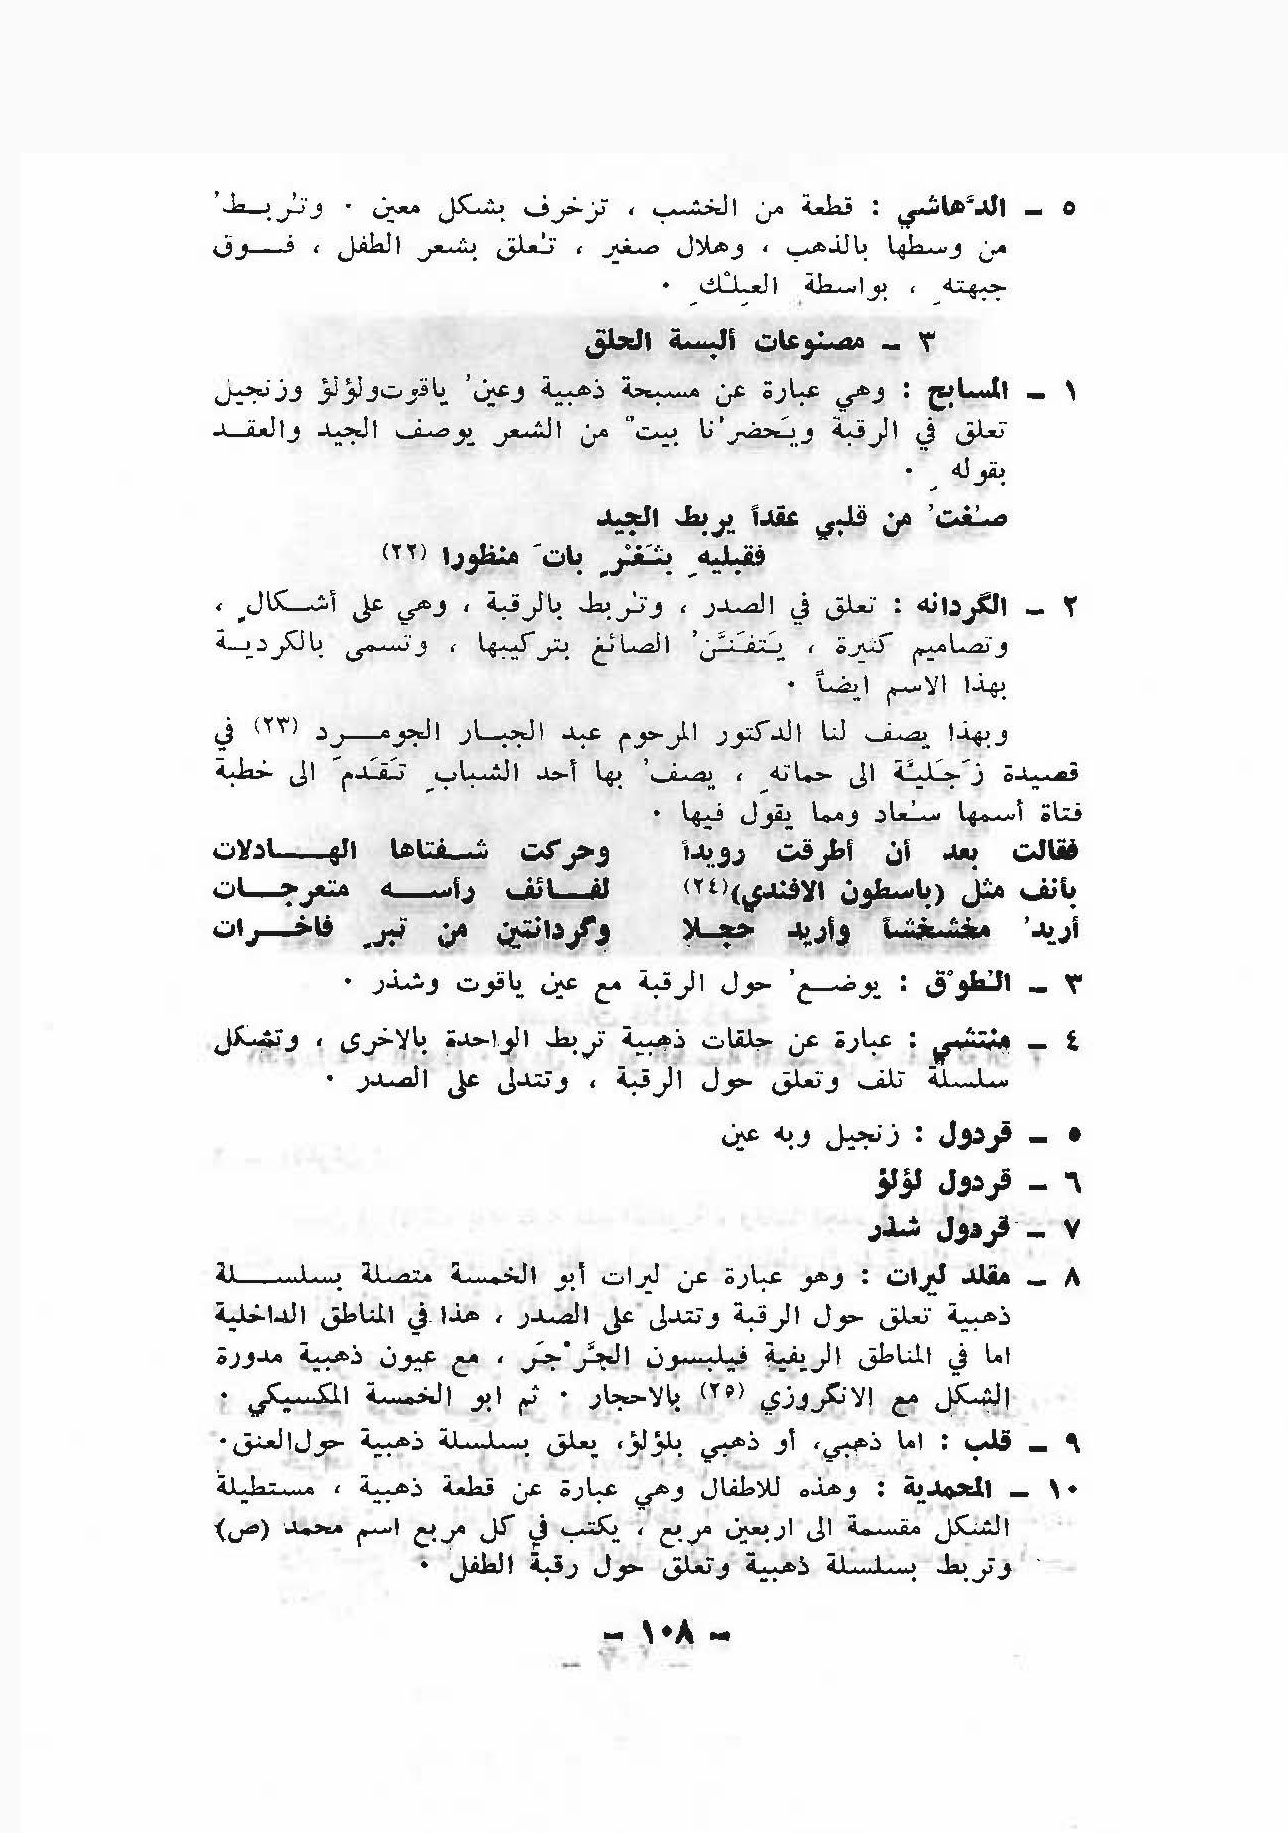 ٥ ــ الدْهاشي : قطعة من الخشب ، تزخرف بشكل معين ٠ وتُربط ُ
من وسطها بالذهب ، وهلال صغير ، تُعلق بشعر الطفل ، فـوق
جبهتهِ ، بواسطةِ العِلْكِ ٠
٣ ــ مصنوعات ألبسة الحلق
١ ــ المسابح : وهي عبارة عن مسبحة ذهبية وعينُ ياقوت ولؤلؤ وزنجيل
تعلق في الرقبة ويَحضرُنا بيتٌ من الشعر يوصف الجيد والعقـد
بقولهِ ٠
صُغتُ من قلبي عقداً يربط الجيد
فقبليهِ بثَغْرٍ باتَ منظورا (٢٢)
٢ ــ الگردانه : تعلق في الصدر ، وتُربط بالرقبة ، وهي على أشكالٍ ،
وتصاميم كثيرة ، يَتَفَنَّنُ الصائغ بتركيبها ، وتسمى بالكرديـة
بهذا الاسم ايضاً ٠
وبهذا يصف لنا الدكتور المرحوم عبد الجبار الجومـرد (٢٣) في
قصيدة زَجَليَّة الى حماتهِ ، يصفُ بها أحد الشبابِ تَقَدَمَ الى خطبة
فتاة أسمها سُعاد ومما يقول فيها ٠
فقالت بعد أن أطرقت رويداً وحركت شفتاها الهـادلات
بأنف مثل (باسطون الافندي)(٢٤) لفـائف رأسـه متعرجـات
أريدُ مخشخشاً وأريد حجـلا وگردانتين من تبرٍ فاخـرات
٣ ــ الطوْق : يوضعُ حول الرقبة مع عين ياقوت وشذر ٠
٤ ــ منتشي : عبارة عن حلقات ذهبية تربط الواحدة بالاخرى ، وتشكل
سلسلة تلف وتعلق حول الرقبة ، وتتدلى على الصدر ٠
٥ ــ قردول : زنجيل وبه عين
٦ ــ قردول لؤلؤ
٧ ــ قردول شذر
٨ ــ مقلد ليرات : وهو عبارة عن ليرات أبو الخمسة متصلة بسلسـلة
ذهبية تعلق حول الرقبة وتتدلى على الصدر ، هذا في المناطق الداخلية
اما في المناطق الريفية فيلبسون الجَّرْجَر ، مع عيون ذهبية مدورة
الشكل مع الانگروزي (٢٥) بالاحجار ٠ ثم ابو الخمسة المكسيكي ٠
٩ ــ قلب : اما ذهبي، أو ذهبي بلؤلؤ، يعلق بسلسلة ذهبية حول العنق٠
١٠ ــ المحمدية : وهذه للاطفال وهي عبارة عن قطعة ذهبية ، مستطيلة
الشكل مقسمة الى اربعين مربع ، يكتب في كل مربع اسم محمد (ص)
وتربط بسلسلة ذهبية وتعلق حول رقبة الطفل ٠
ــ ١٠٨ ــ